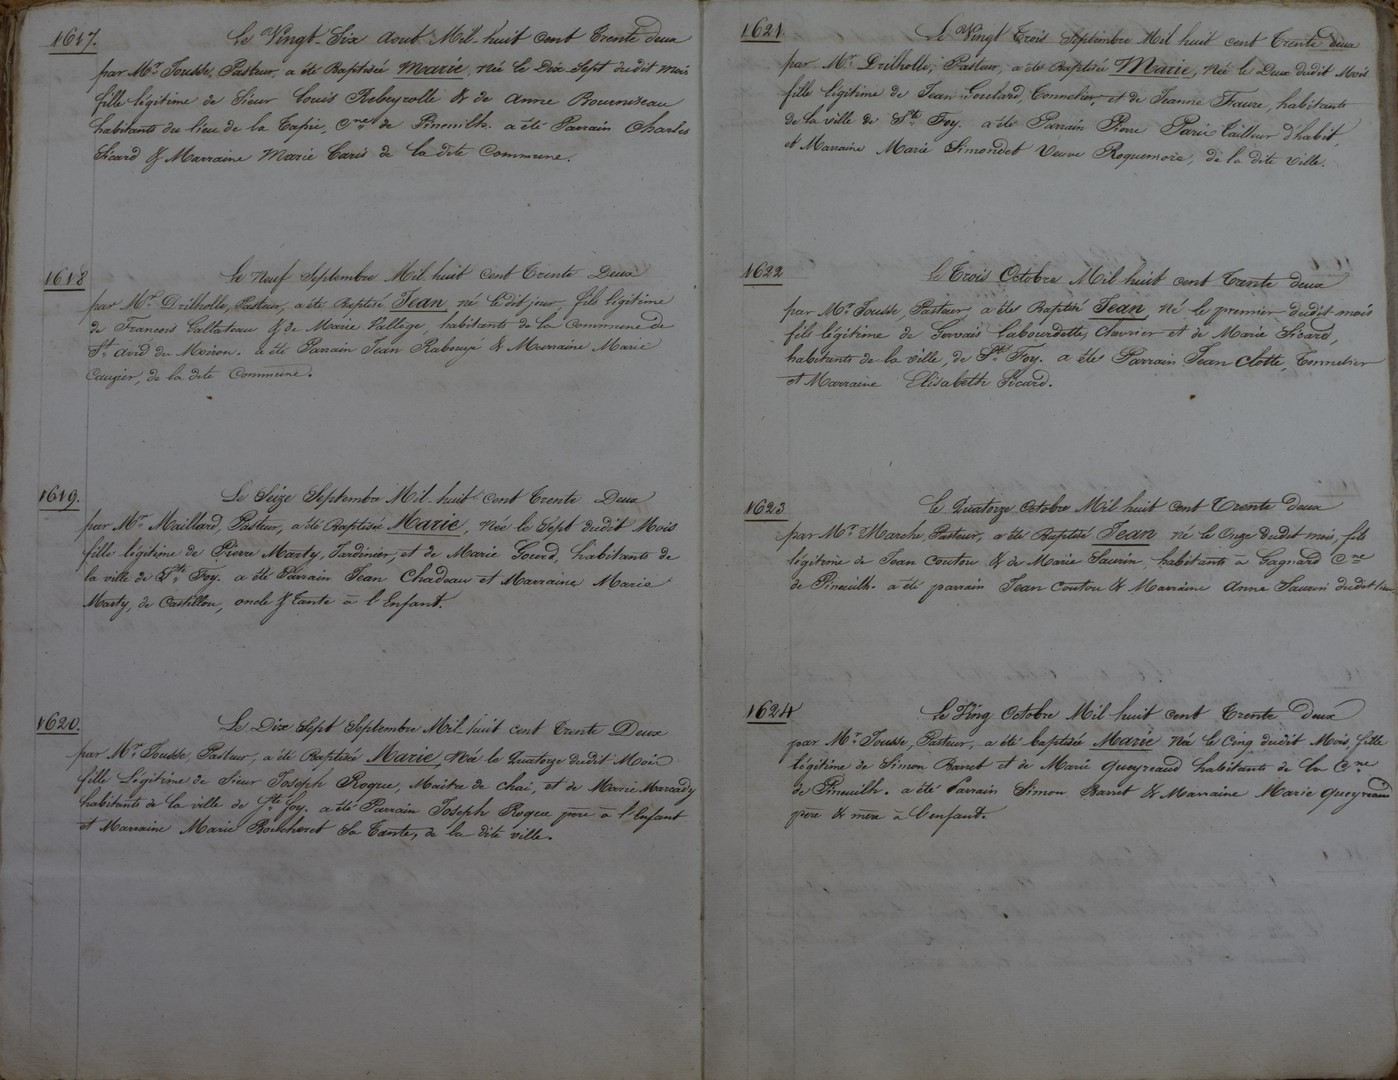 1617.
Le Vingt-Six Aout Mil-huit cent Trente deux
par Mr. Jousse, Pasteur, a été Baptisée Marie, née le Dix-Sept dudit mois
fille légitime de Sieur Louis Rebeyrolle & de Anne
habitants du lieu de la Tapie, Cne. de Pineuilh. a été Parrain Charles
Sicard & Marraine Marie Caris de la dite Commune.
1618
Le Neuf Septembre Mil huit cent Trente Deux
par Mr. Drilholle, Pasteur, a été Baptisé Jean né ledit jour, fils légitime
de Francois & de Marie Vallège, habitants de la Commune de
St. Avid du Moiron. a été Parrain Jean Rabouyé & Marraine Marie
Caugier, de la dite Commune.
1619.
Le Seize Septembre Mil-huit cent Trente Deux
par Mr. Maillard, Pasteur, a été Baptisée Marie, Née le Sept dudit Mois
fille légitime de Pierre Marty, Jardinier, et de Marie Sourd, habitants de
la ville de Ste. Foy. a été Parrain Jean Chadeau et Marraine Marie
Marty, de Castillon, oncle & Tante à l'Enfant.
1620.
Le Dix Sept Septembre Mil huit cent Trente Deux
par Mr. Jousse, Pasteur, a été Baptisée Marie, Née le Quatorze dudit Mois
fille Légitime de Sieur Joseph Roque, Maitre de chai, et de Marie
habitants de la ville de Ste. foy. a été Parrain Joseph Roque père à l'Enfant
et Marraine Marie Boucheret Sa Tante, de la dite ville.
1621
Le Vingt Trois Septembre Mil huit cent Trente deux
par Mr. Drilholle, Pasteur, a été Baptisée Marie, Née le Deux dudit Mois
fille légitime de Jean Goulard, Tonnelier, et de Jeanne Faure, habitants
de la ville de Ste. Foy. a été Parrain Pierre Paris Tailleur d'habit,
et Marraine Marie Simondet Veuve Roquemore, de la dite Ville.
1622
Le Trois Octobre Mil huit cent Trente deux
par Mr. Jousse, Pasteur, a été Baptisé Jean Né le premier dudit mois
fils légitime de Gervais Labourdette, et de Marie Sicard,
habitants de la ville, de Ste. Foy. a été Parrain Jean Clotte, Tonnelier
et Marraine Elisabeth Sicard.
1623
Le Quatorze Octobre Mil huit Cent Trente deux
par Mr. Marche Pasteur, a été Baptisé Jean né le Onze Dudit mois, fils
légitime de Jean Coutou & de Marie Saurin, habitants à Gagnard Cne
de Pineuilh. a été parrain Jean Coutou & Marraine Anne Saurin dudit lieu
1624
Le Vingt Octobre Mil huit cent Trente deux
par Mr. Jousse, Pasteur, a été baptisée Marie Née le Cinq dudit Mois, fille
légitime de Simon Barret et de Marie Queyreaud habitants de la Cne
de Pineuilh. a été Parrain Simon Barret & Marraine Marie Queyreaud
père & mère à l'enfant.